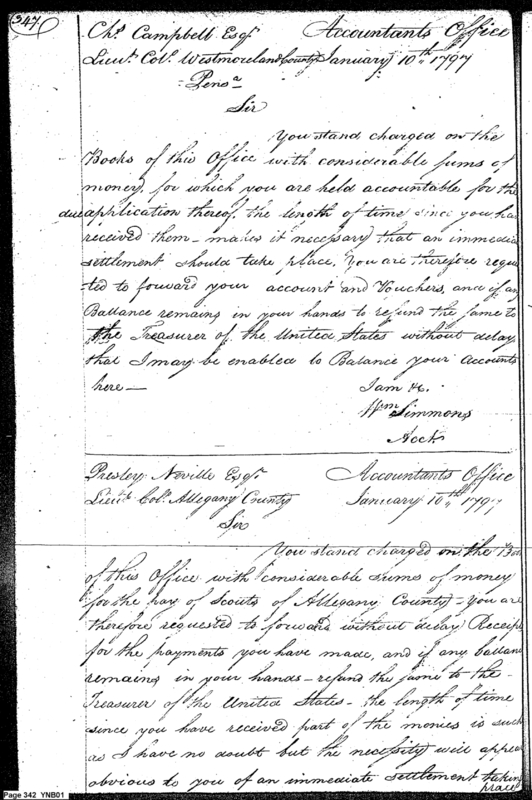 347
Chs. Campbell Esqr. Accountants Office
Lieut. Col. Westmoreland County January 10th. 1797
Pensa
Sir
You stand charged on the
Books of this Office with considerable sums of
money, for which you are held accountable for the
due application thereof, the length of time since you have
received them - makes it necessary that an immedi
settlement should take place. You are therefore reques
ted to forward your account and Vouchers, and if any
Ballance remaining in your hands to refund the same to
the Treasurer of the United States without delay
that I may be enabled to Balance your Accounts
here —
I am &c.
Wm Simmons
Acct
Presley Neville Esqr. Accountants Office
Lieut. Col. Allegany County January 10th. 1797
Sir
You stand charged on the Boo
of this Office with considerable sums of money
for the pay of Scouts of Allegany County - You are
therefore requested to forward without delay Receipt
for the payments you have made, and if any ballan
remaining in your hands - refund the same to the
Treasurer of the United States - the length of time
since you have received part of the monies is such
as I have no doubt but the necessity will appear
obvious to you of an immediate settlement taking
place
Page 342 YNB01